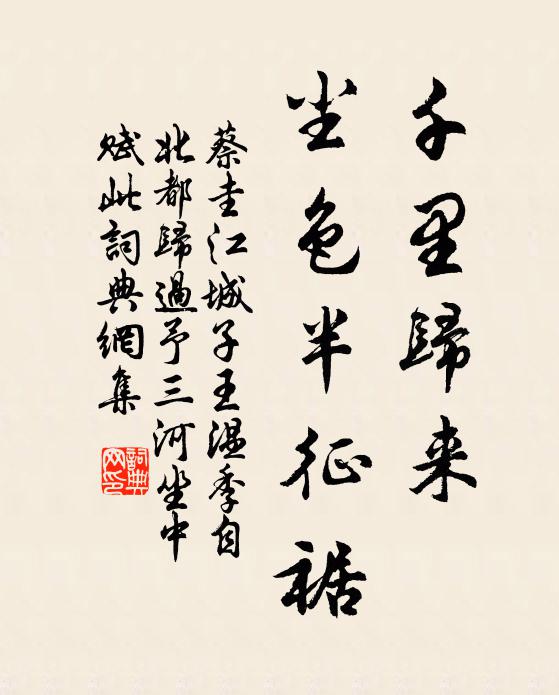 千里歸来
尘色半征裾
蔡圭江城子王温季自
北都歸過予三河坐中
赋此詞典網集
詞典
网印